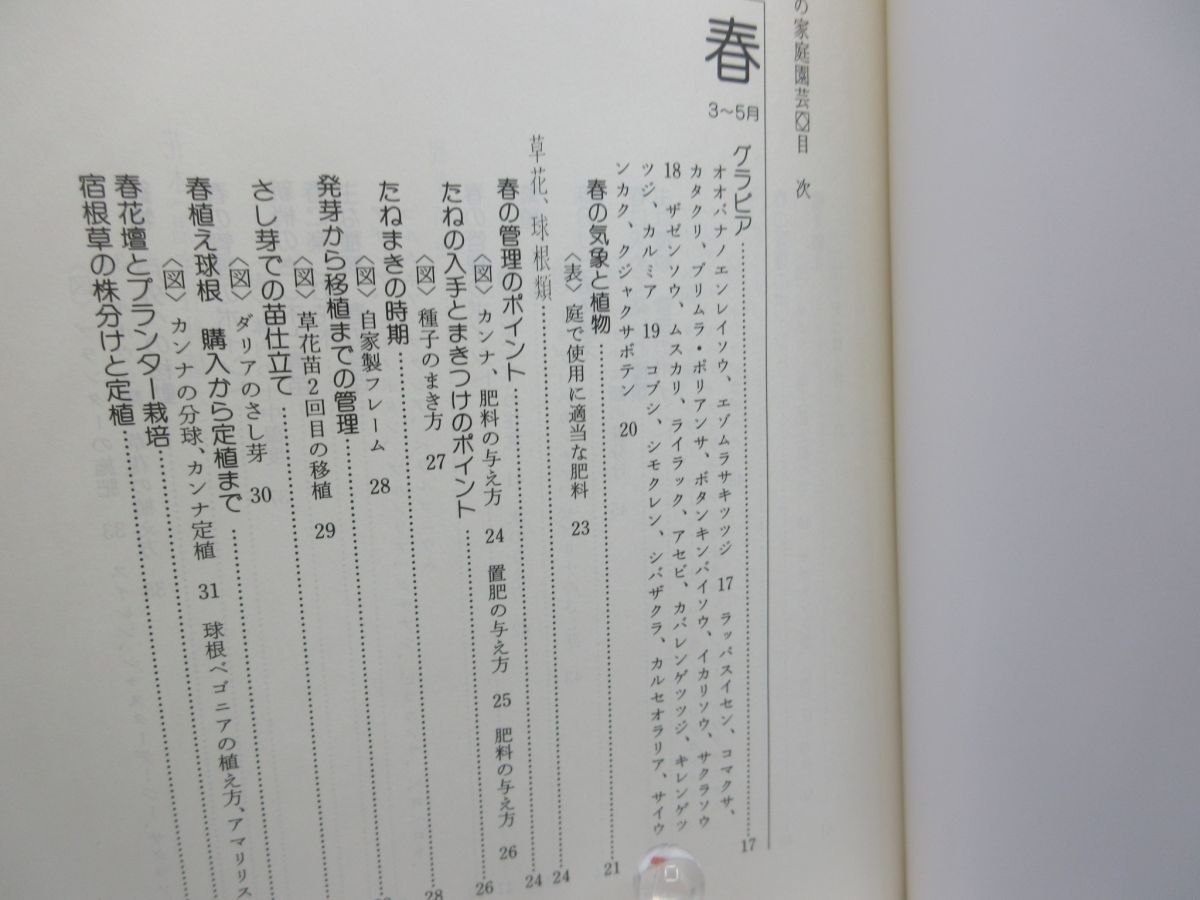 の家庭園芸 目次
春
3～5月
グラビア 17
オオバナノエンレイソウ、エゾムラサキツツジ 17 ラッパスイセン、コマクサ、
カタクリ、プリムラ・ポリアンサ、ボタンキンバイソウ、イカリソウ、サクラソウ
18 ザゼンソウ、ムスカリ、ライラック、アセビ、カバレンゲツツジ、キレンゲツ
ツジ、カルミア 19 コブシ、シモクレン、シバザクラ、カルセオラリア、サイウ
ンカク、クジャクサボテン 20
春の気象と植物 21
〈表〉庭で使用に適当な肥料 23
草花、球根類 24
春の管理のポイント 24
〈図〉カンナ、肥料の与え方 24 置肥の与え方 25 肥料の与え方 26
たねの入手とまきつけのポイント 26
〈図〉種子のまき方 27
たねまきの時期 28
〈図〉自家製フレーム 28
発芽から移植までの管理
〈図〉草花苗2回目の移植 29
さし芽での苗仕立て
〈図〉ダリアのさし芽 30
春植え球根 購入から定植まで
〈図〉カンナの分球、カンナ定植 31 球根ベゴニアの植え方、アマリリス
春花壇とプランター栽培
宿根草の株分けと定植